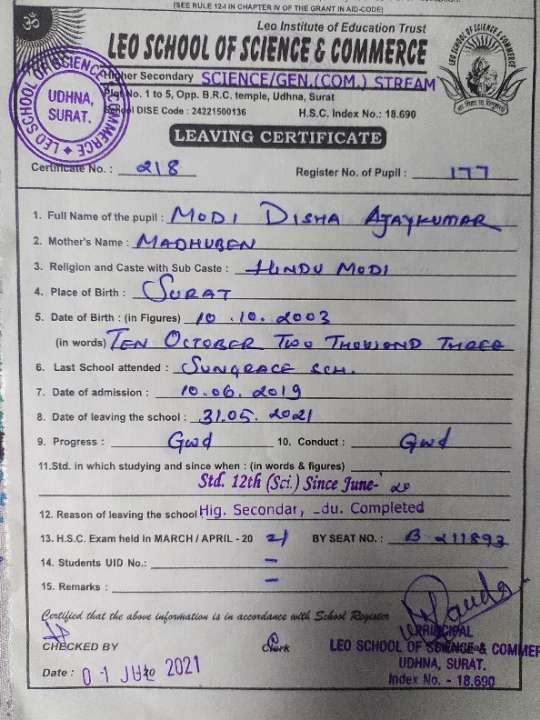 (SEE RULE 12-I IN CHAPTER IV OF THE GRANT IN AID-CODE)
ॐ
Leo Institute of Education Trust
LEO SCHOOL OF SCIENCE & COMMERCE
Higher Secondary SCIENCE/GEN.(COM.) STREAM
Plot No. 1 to 5, Opp. B.R.C. temple, Udhna, Surat
School DISE Code : 24221500136 H.S.C. Index No.: 18.690
LEO SCHOOL OF SCIENCE & COMMERCE
UDHNA,
SURAT.
LEAVING CERTIFICATE
Certificate No. : 218 Register No. of Pupil : 177
1. Full Name of the pupil : MODI DISHA AJAYKUMAR
2. Mother's Name : MADHUBEN
3. Religion and Caste with Sub Caste : HINDU MODI
4. Place of Birth : SURAT
5. Date of Birth : (in Figures) 10.10.2003
(in words) TEN OCTOBER TWO THOUSAND THREE
6. Last School attended : SUNGRACE SCH.
7. Date of admission : 10.06.2019
8. Date of leaving the school : 31.05.2021
9. Progress : Good 10. Conduct : Good
11.Std. in which studying and since when : (in words & figures)
Std. 12th (Sci.) Since June- 20
12. Reason of leaving the school Hig. Secondar, du. Completed
13. H.S.C. Exam held in MARCH / APRIL - 20 21 BY SEAT NO. : B 211893
14. Students UID No.: -
15. Remarks : -
Certified that the above information is in accordance with School Register
CHECKED BY Clerk PRINCIPAL
LEO SCHOOL OF SCIENCE & COMMER
UDHNA, SURAT.
Date : 01 JUL 2021 Index No. - 18.690